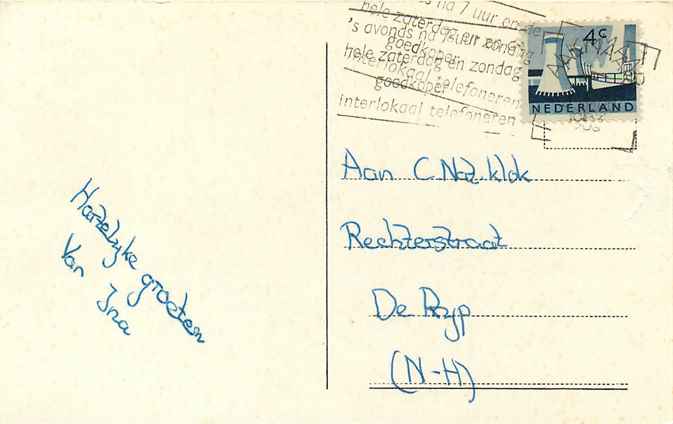 's avonds na 7 uur en de
hele zaterdag en zondag
goedkoper
interlokaal telefoneren
's avonds na 7 uur en de
hele zaterdag en zondag
goedkoper
interlokaal telefoneren
4c
NEDERLAND
Aan C. Naz. Klok
Rechterstraat
De Ryp
(N-H)
Hartelyke groeten
Van Ina